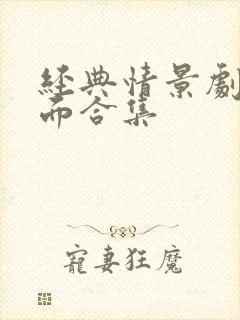 經典情景劇
而合集
寵妻狂魔